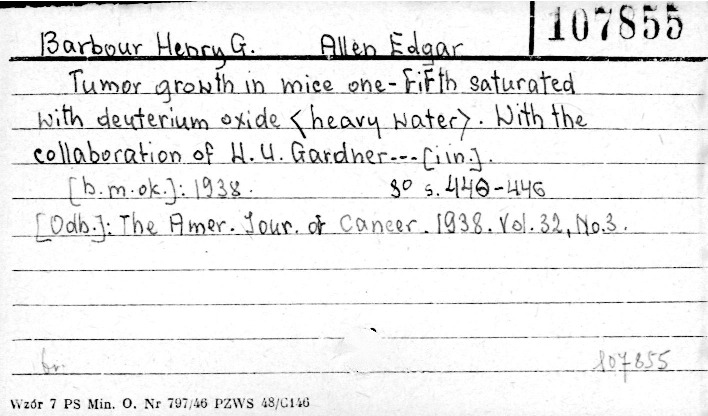 107855
Barbour Henry G. Allen Edgar
Tumor growth in mice one-fifth saturated
with deuterium oxide <heavy water>. With the
collaboration of W. U. Gardner --- [i in.].
[b.m.ok.]: 1938. 8° s. 440-446
[Odb.]: The Amer. Jour. of Cancer. 1938. Vol. 32, No. 3.
107855
Wzór 7 PS Min. O. Nr 797/46 PZWS 48/C146